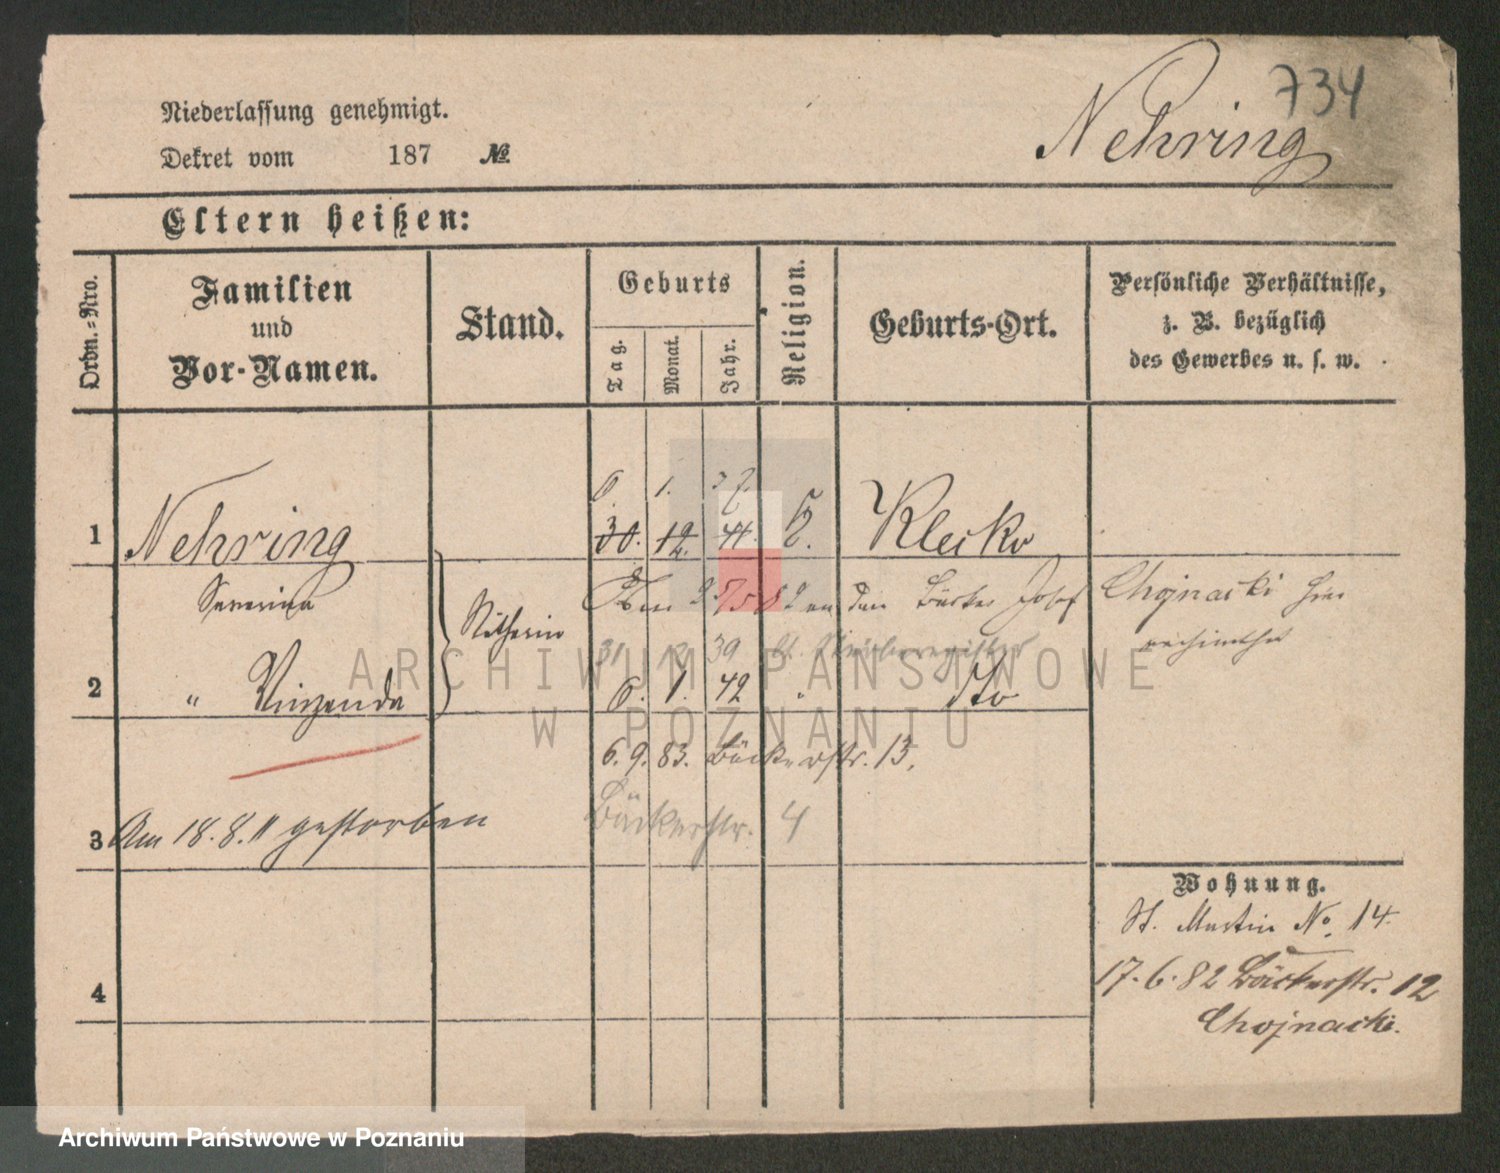 734
Niederlassung genehmigt.
Nehring
Dekret vom 187 №
Eltern heißen:
Ordn.-Nro.
Familien und Vor-Namen.
Stand.
Geburts
Tag.
Monat.
Jahr.
Religion.
Geburts-Ort.
Persönliche Verhältnisse,
z. B. bezüglich
des Gewerbes u. s. w.
6. 1. 37.
1 Nehring 30. 12. 41. K. Klecko
Severina
Am 25/5 82 an den Bäcker Josef Chojnacki hier
verheirathet
Näherin
31 12 39 lt. Sterberegister
2 " Vinzenda 6. 1. 42 " Do
6. 9. 83. Bäckerstr. 13.
3 Am 18. 8. 11 gestorben
Bäckerstr. 4
Wohnung.
St. Martin No. 14.
17. 6. 82 Bäckerstr. 12
4
Chojnacki.
ARCHIWUM PAŃSTWOWE
W POZNANIU
Archiwum Państwowe w Poznaniu